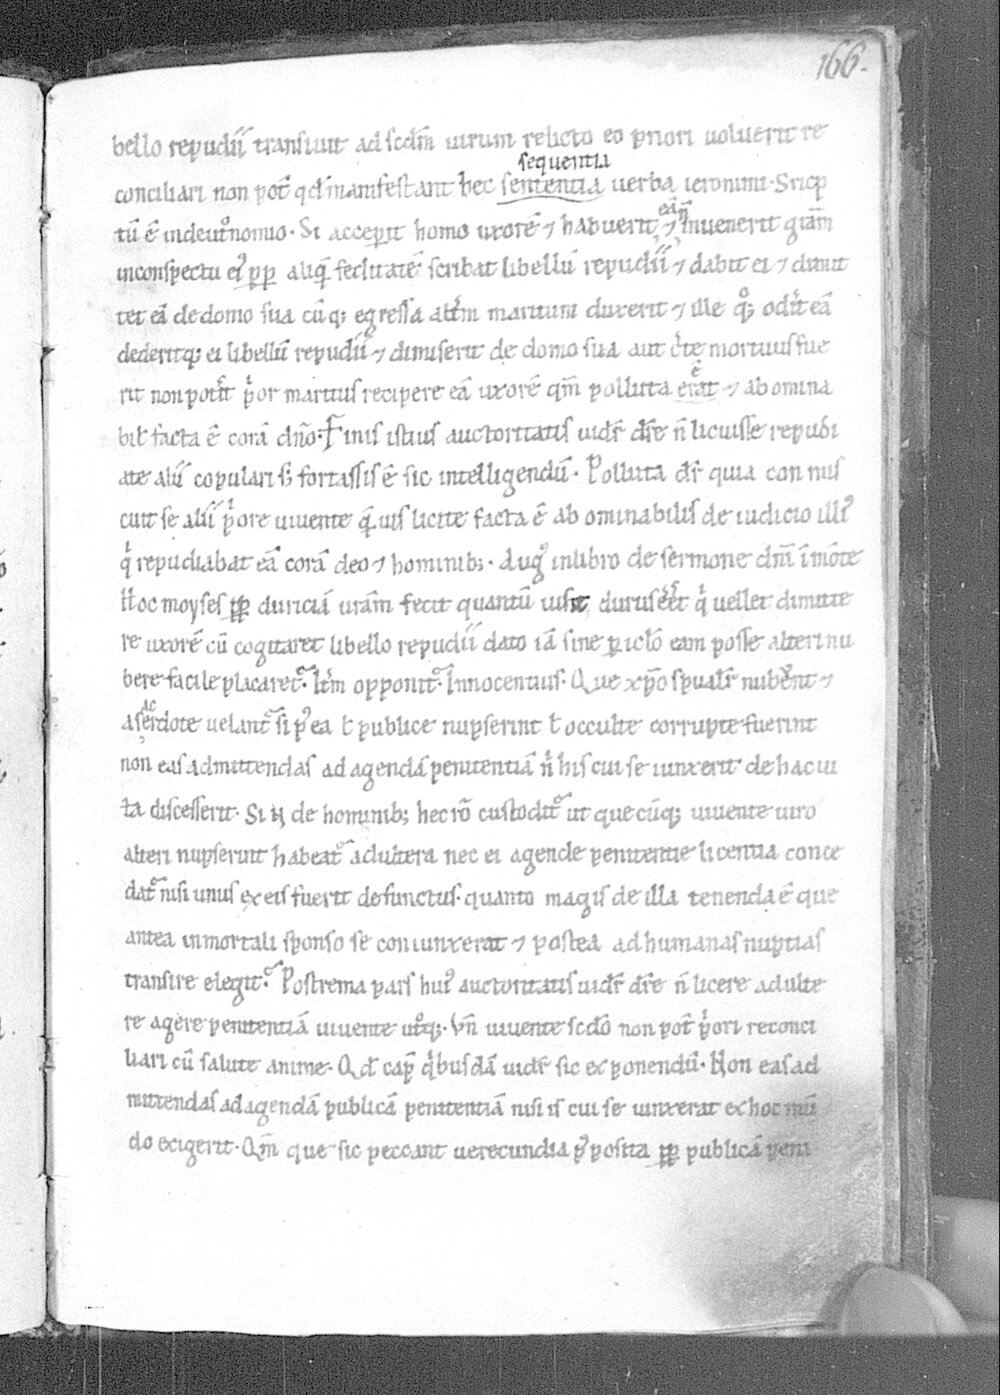 166.
bello repudii transiuit ad scd̄m uirum relicto eo priori uoluerit re
sequentia
conciliari non pot̄ qd̄ manifestant hec sententia uerba ieronimi. Sc̓p
tū ē indeut͛nomio. Si acceperit homo uxorē ⁊ habuerit, ⁊ eā n̄ inuenerit gr̄am
inconspectu eiꝰ ꝓp̄ aliq̄ feditatē scribat libellū repudii ⁊ dabit ei ⁊ dimit
tet eā de domo sua cūq; egressa alt̄m maritum duxerit ⁊ ille q̊; odit eā
dederitq; ei libellū repudii ⁊ dimiserit de domo sua aut c̄te mortuus fue
rit non pot̄it p̓or maritus recipere eā uxorē qm̄ polluta erat ē ⁊ abomina
bil̄ facta ē corā dn̄o. Finis istius auctoritatis uidr̄ dr̄e n̄ licuisse repudi
ate alii copulari sꝫ fortassis ē sic intelligendū. Polluta dr̄ quia con mis
cuit se alii p̓ore uiuente q̄uis licite facta ē ab ominabilis de iudicio illiꝰ
q̓ repudiabat eā corā deo ⁊ hominib;. Augꝰ inlibro de sermone dn̄i ī mōte
Hoc moyses ꝓp̄ duriciā ur̄am fecit quantū uis durus eēt q̓ uellet dimitte
re uxorē cū cogitaret libello repudii dato iā sine ꝑiclo eam posse alteri nu
bere facile placaret᷑. It̄m opponit᷑. Innocentius. Que xp̄o spualr̄ nubent ⁊
a sac̄rdote uelant᷑ si pꝰ ea ł publice nupserint ł occulte corrupte fuerint
non eas admittendas ad agendā penitentiā n̓ his cui se iunxerit de hac ui
ta discesserit. Si n̄ de hominib; hec rō custodit᷑ ut que cūq; uiuente uiro
alteri nupserint habeat᷑ adultera nec ei agende penitentie licentia conce
dat᷑ nisi unus ex eis fuerit defunctus. quanto magis de illa tenenda ē que
antea inmortali sponso se coniunxerat ⁊ postea ad humanas nuptias
transire elegit᷑. Postrema pars huiꝰ auctoritatis uidr̄ dr̄e n̄ licere adulte
re agere penitentiā uiuente ut͛q;. Vn̄ uiuente scd̄o non pot̄ p̓ori reconci
liari cū salute anime. Qd̄ cap̄ q̓busdā uidr̄ sic ex ponendū. Non eas ad
mittendas ad agendā publicā penitentiā nisi is cui se iunxerat ex hoc mū
do exigerit. Qm̄ que sic peccant uerecundia pꝰ posita ꝓp̄ publicā peni